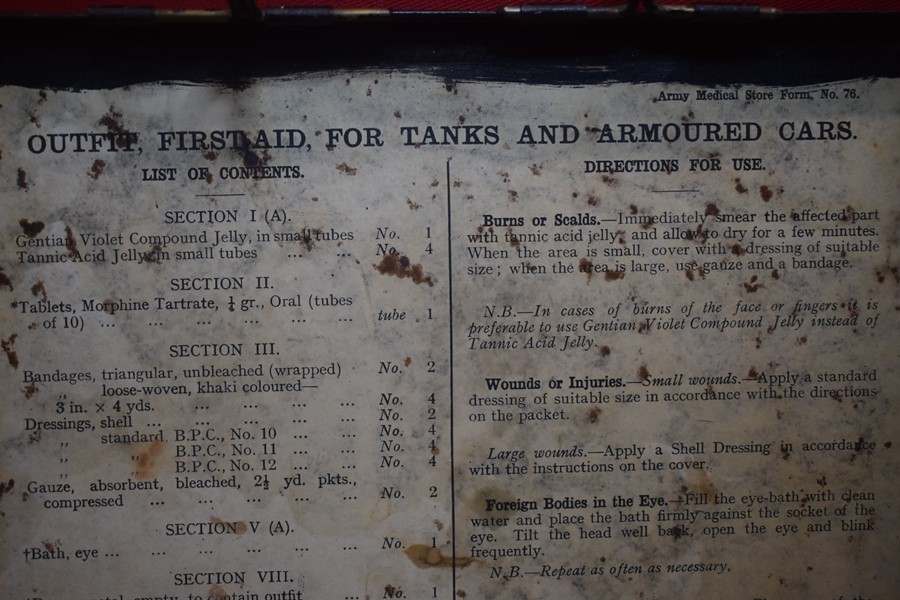 Army Medical Store Form, No. 76.
OUTFIT, FIRST AID, FOR TANKS AND ARMOURED CARS.
LIST OF CONTENTS.
SECTION I (A).
Gentian Violet Compound Jelly, in small tubes No. 1
Tannic Acid Jelly, in small tubes ... ... No. 4
SECTION II.
*Tablets, Morphine Tartrate, ¼ gr., Oral (tubes
of 10) ... ... ... ... ... tube 1
SECTION III.
Bandages, triangular, unbleached (wrapped) No. 2
„ loose-woven, khaki coloured—
3 in. × 4 yds. ... ... ... ... No. 4
Dressings, shell ... ... ... ... ... No. 2
„ standard, B.P.C., No. 10 ... ... No. 4
„ „ B.P.C., No. 11 ... ... No. 4
„ „ B.P.C., No. 12 ... ... No. 4
Gauze, absorbent, bleached, 2½ yd. pkts.,
compressed ... ... ... ... No. 2
SECTION V (A).
†Bath, eye ... ... ... ... ... No. 1
SECTION VIII.
empty, to contain outfit ... No. 1
DIRECTIONS FOR USE.
Burns or Scalds.—Immediately smear the affected part
with tannic acid jelly, and allow to dry for a few minutes.
When the area is small, cover with a dressing of suitable
size; when the area is large, use gauze and a bandage.
N.B.—In cases of burns of the face or fingers it is
preferable to use Gentian Violet Compound Jelly instead of
Tannic Acid Jelly.
Wounds or Injuries.—Small wounds.—Apply a standard
dressing of suitable size in accordance with the directions
on the packet.
Large wounds.—Apply a Shell Dressing in accordance
with the instructions on the cover.
Foreign Bodies in the Eye.—Fill the eye-bath with clean
water and place the bath firmly against the socket of the
eye. Tilt the head well back, open the eye and blink
frequently.
N.B.—Repeat as often as necessary.
of the